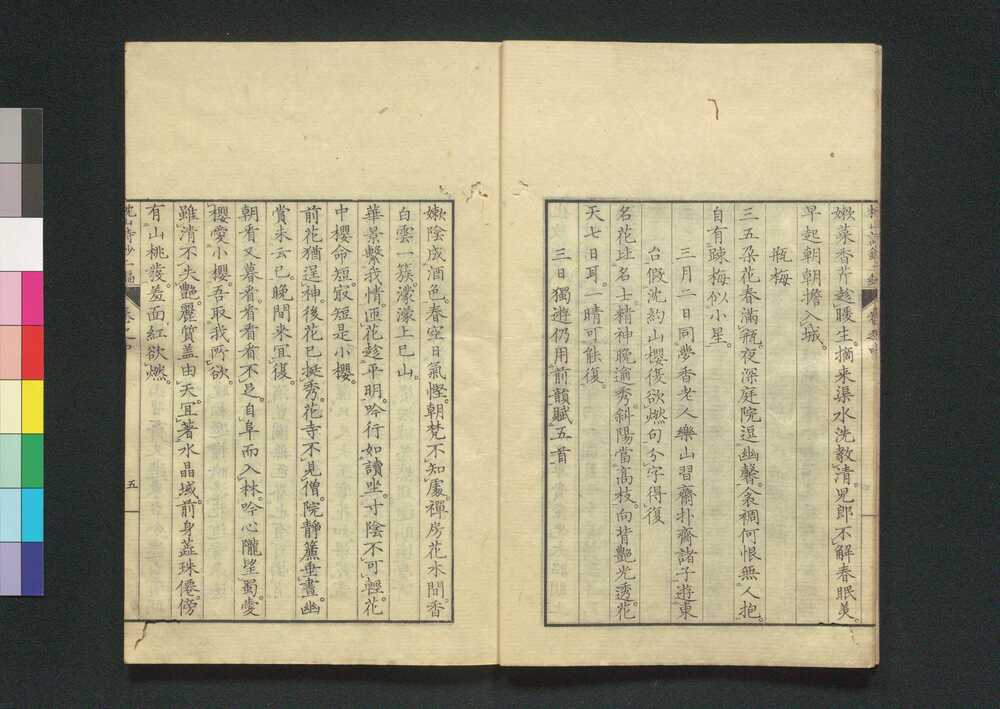 嫩菜香芹趁暖生。摘来渠水洗教清。児郎不解春眠美。
早起朝朝擔入城。
瓶梅
三五朶花春滿瓶。夜深庭院逗幽馨。衾裯何恨無人抱。
自有疎梅似小星。
三月二日同夢香老人樂山習齋朴齋諸子遊東
台假沈約山櫻復欲燃句分字得復
名花比名士。精神晩逾秀。斜陽當高枝。向背艷光透。花
天七日耳。一晴可能復。
三日獨遊仍用前韻賦五首
嫩陰成酒色。春空日氣慳。朝梵不知處。禪房花木間。香
白雲一簇。濛濛上巳山。
華景繫我情。匝花趁平明。吟行如讀坐。寸陰不可輕。花
中櫻命短。寂短是小櫻。
前花猶逞神。後花已挺秀。花寺不見僧。院靜簾垂晝。幽
賞未云已。晩間来宜復。
朝看又暮看。看看看不足。自阜而入林。吟心隴望蜀。愛
櫻愛小櫻。吾取我所欲。
雖清不失艷。麗質蓋由天。宜著水晶域。前身蕋珠僊。傍
有山桃發。羞面紅欲燃。
五